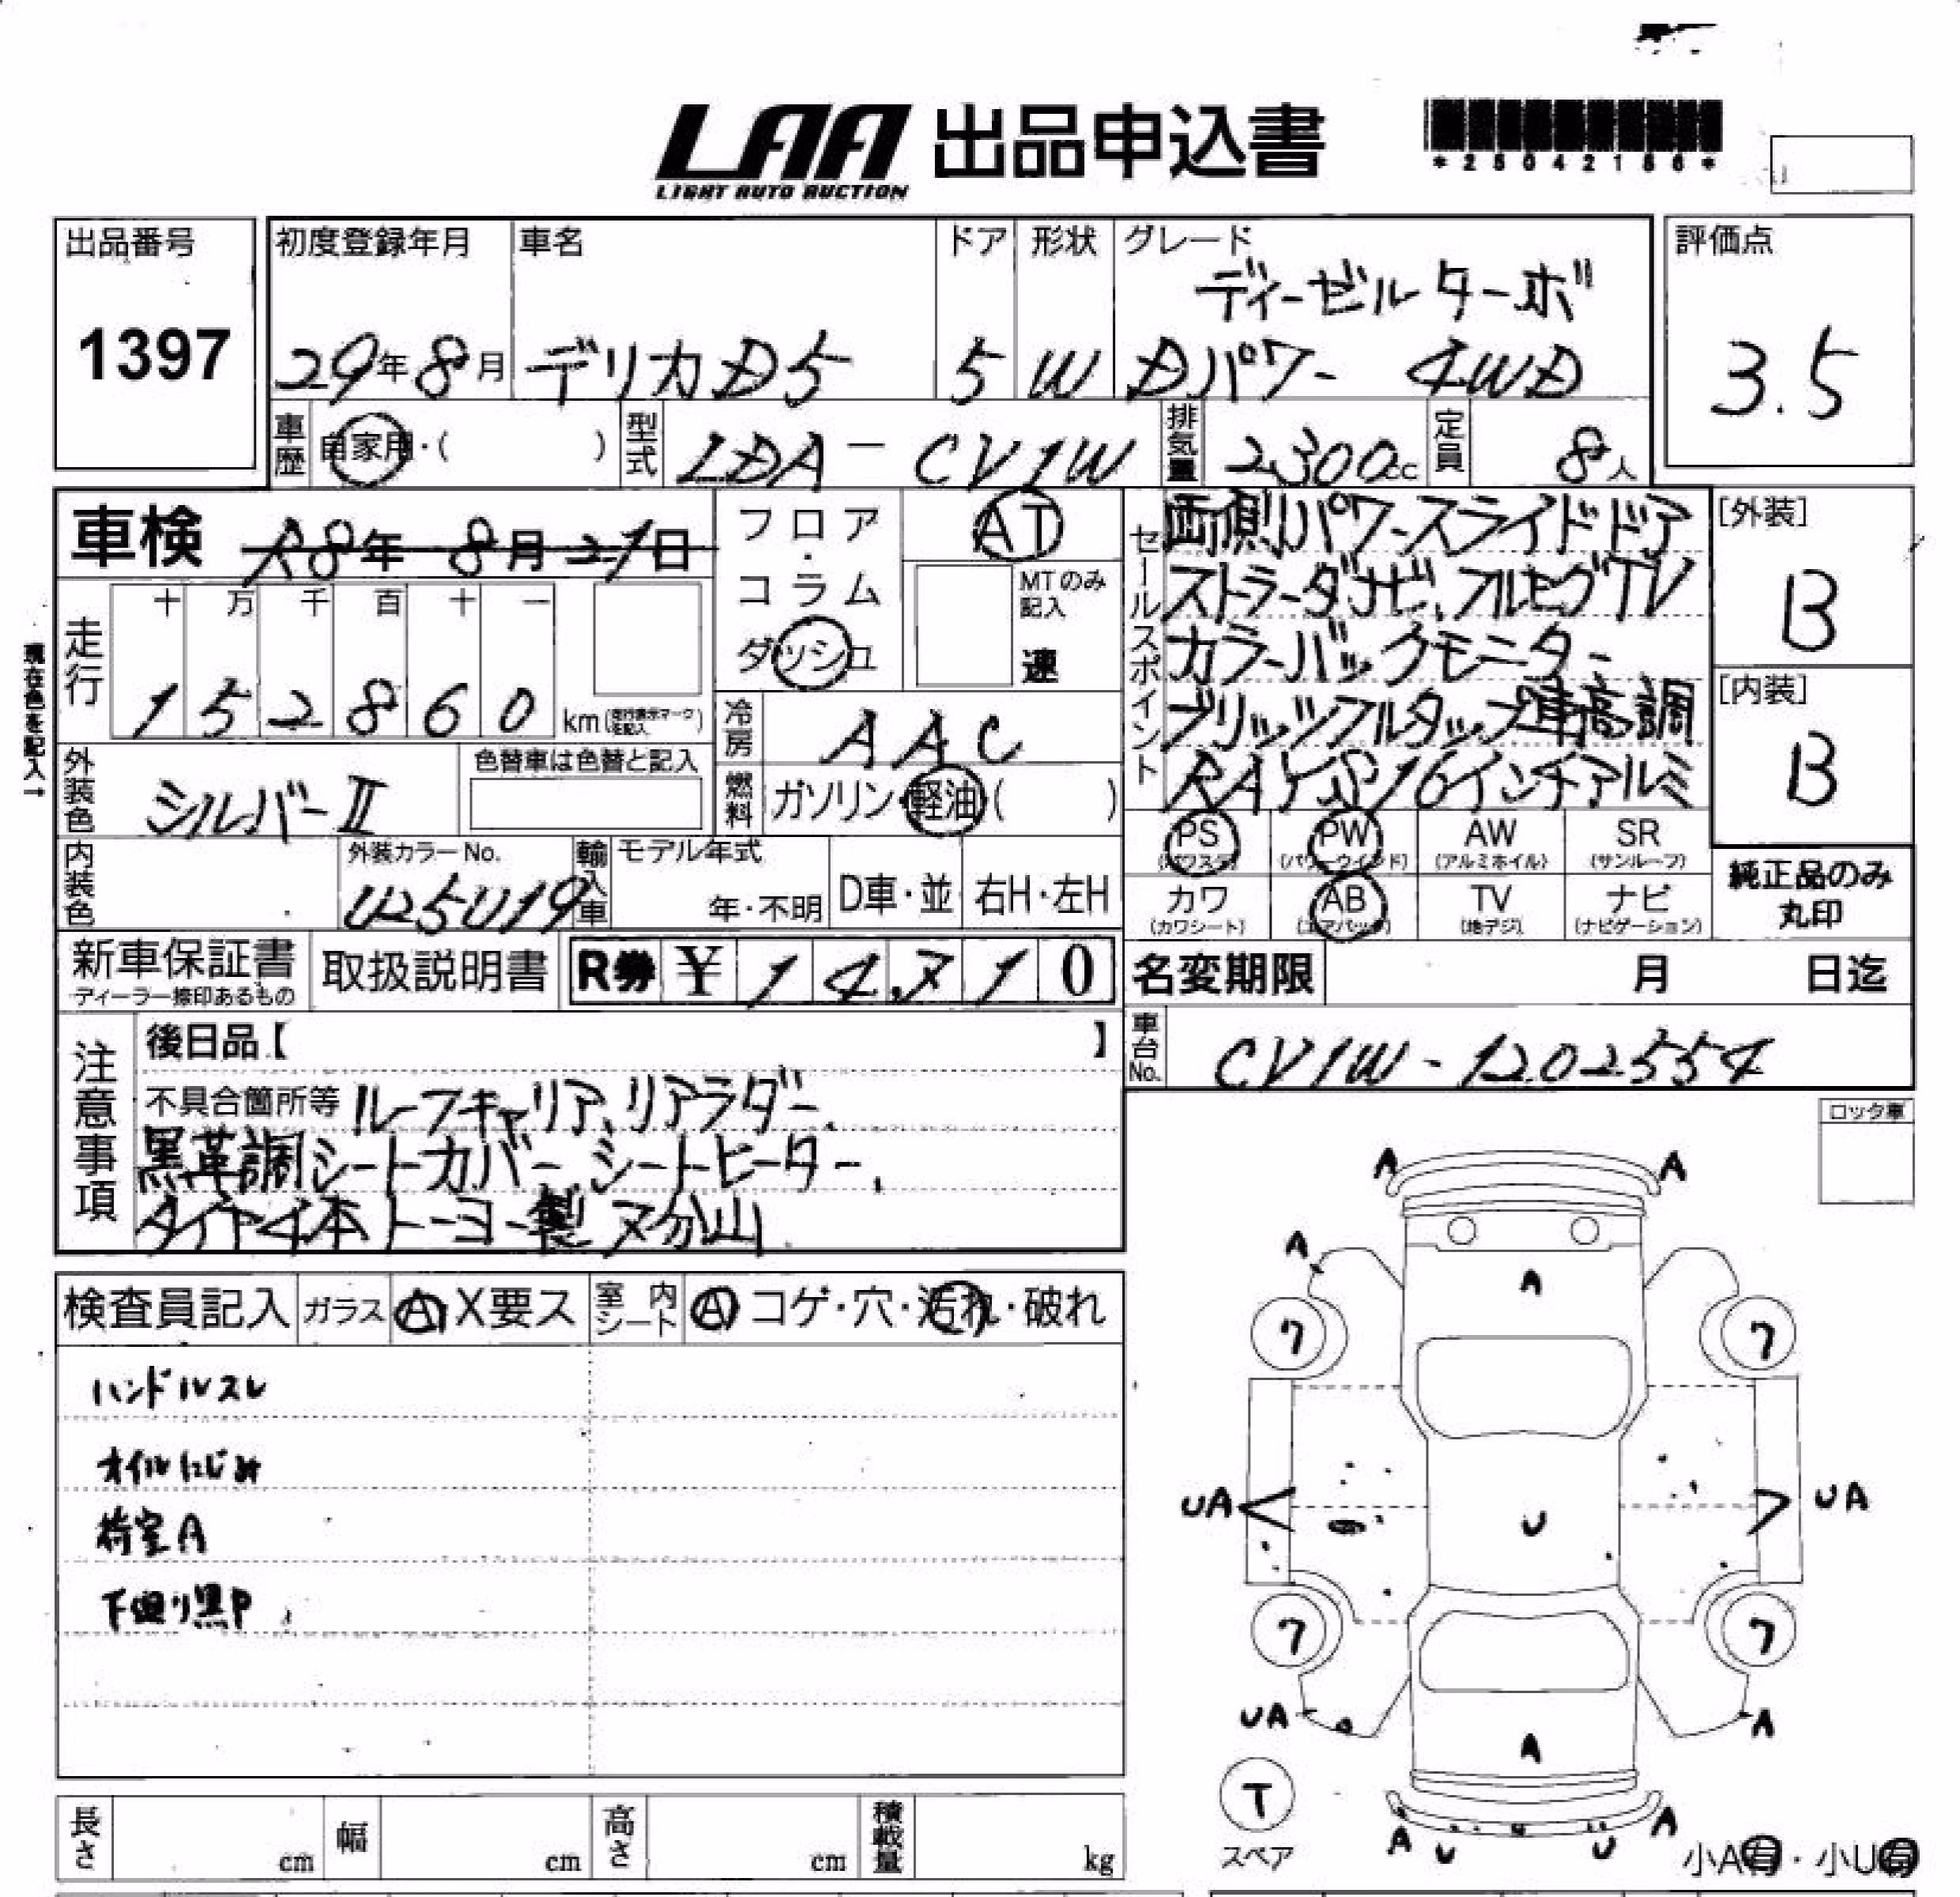 LAA 出品申込書
LIGHT AUTO AUCTION
*25042186*
出品番号
1397
初度登録年月
29年8月
車名
デリカD5
ドア
5
形状
W
グレード
ディーゼルターボ
Dパワー 4WD
評価点
3.5
車歴
自家用・( )
型式
LDA-CV1W
排気量
2300cc
定員
8人
車検 R8年 8月 21日
フロア・コラム
ダッシュ
AT
MTのみ記入
速
走行
十 万 千 百 十 一
1 5 2 8 6 0 km(走行表示マークを記入)
現在色を記入→
冷房
AAC
外装色
シルバーⅡ
色替車は色替と記入
燃料
ガソリン・軽油( )
内装色
外装カラーNo.
U25U19
輸入車
モデル年式
年・不明
D車・並
右H・左H
セールスポイント
両側パワースライドドア
ストラーダナビ、フルセグTV
カラーバックモニター
ブリッツフルタップ車高調
RAYS16インチアルミ
[外装]
B
[内装]
B
PS PW AW SR
(パワステ) (パワーウインド) (アルミホイル) (サンルーフ)
カワ AB TV ナビ
(カワシート) (エアバッグ) (地デジ) (ナビゲーション)
純正品のみ
丸印
新車保証書
ディーラー捺印あるもの
取扱説明書
R券 ¥ 14,710
名変期限 月 日迄
車台No.
CV1W-1202554
注意事項
後日品【 】
不具合箇所等 ルーフキャリア、リアラダー、
黒革調シートカバー、シートヒーター、
タイヤ4本トーヨー製ヌ分山
検査員記入
ガラス
A X要ス
室内シート
A コゲ・穴・汚れ・破れ
ハンドルスレ
オイルにじみ
荷室A
下廻り黒P
長さ cm
幅 cm
高さ cm
積載量 kg
ロック車
A A
A
A
7 7
UA U UA
7 7
UA A
A
T
スペア
A U U A
小A有・小U有